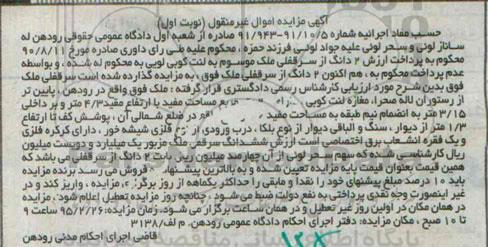 آگهی مزایده اموال غیرمنقول (نوبت اول)
حسب مفاد اجرائیه شماره ۹۱/۱۰/۵-۹۱/۹۴۳ صادره از شعبه اول دادگاه عمومی حقوقی رودهن له
ساناز لونی و سحر لونی علیه جواد لونی فرزند حمزه ، محکوم علیه طی رای داوری صادره مورخ ۹۰/۸/۱۱
محکوم به پرداخت ارزش ۲ دانگ از سرقفلی ملک موسوم به لنت کوبی لونی به محکوم له شده ، و بواسطه
عدم پرداخت محکوم به ، هم اکنون ۲ دانگ از سرقفلی ملک فوق به مزایده گذارده شده است سرقفلی ملک
فوق بدین شرح مورد ارزیابی کارشناس رسمی دادگستری قرار گرفته : ملک فوق واقع در رودهن ، پایین تر
از رستوران لاله صحرا، مغازه لنت کوبی به مساحت مفید با ارتفاع مفید ۴/۳ متر و بر داخلی
۳/۱۵ متر به انضمام نیم طبقه به مساحت مفید در ضلع شمالی آن ، پوشش کف تا ارتفاع
۱/۳ متر از دیوار ، سنگ و الباقی دیوار از نوع بلکا . درب ورودی از نوع فلزی شیشه خور ، دارای کرکره فلزی
و یک فقره انشعاب برق اختصاصی است ارزش ششدانگ سرقفلی ملک مزبور یک میلیارد و دویست میلیون
ریال کارشناسی شده که سهم سحر لونی از آن چهارصد میلیون ریال بابت ۲ دانگ از سرقفلی می باشد که
همین قیمت بعنوان قیمت پایه مزایده تعیین شده و به بالاترین پیشنهاد فروش می رسد برنده مزایده
باید ۱۰ درصد مبلغ پیشنهادی خود را نقدا و مابقی را حداکثر یکماهه از روز برگزاری مزایده ، واریز کند و در
غیر اینصورت وجه نقدی پرداختی به نفع دولت ضبط می شود . چنانچه روز مزایده تعطیل اعلام شود، مزایده
در همان مکان در اولین روز غیر تعطیل و در همان ساعت برگزار می شود. زمان مزایده: ۹۵/۲/۲۶ ساعت ۹
تا ۱۰ صبح ، مکان مزایده: دفتر اجرای احکام دادگاه عمومی رودهن. م الف/۳۱۳۸
قاضی اجرای احکام مدنی رودهن